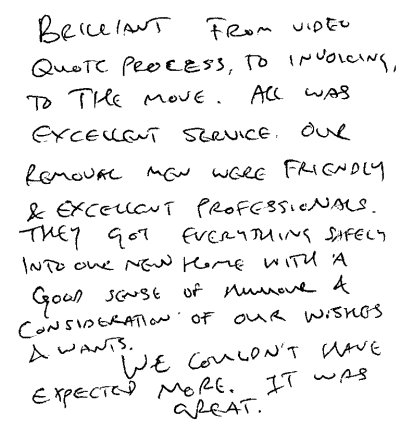 BRILLIANT FROM VIDEO
QUOTE PROCESS, TO INVOICING,
TO THE MOVE. ALL WAS
EXCELLENT SERVICE. OUR
REMOVAL MEN WERE FRIENDLY
& EXCELLENT PROFESSIONALS.
THEY GOT EVERYTHING SAFELY
INTO OUR NEW HOME WITH A
GOOD SENSE OF HUMOUR &
CONSIDERATION OF OUR WISHES
& WANTS.
WE COULDN'T HAVE
EXPECTED MORE. IT WAS
GREAT.